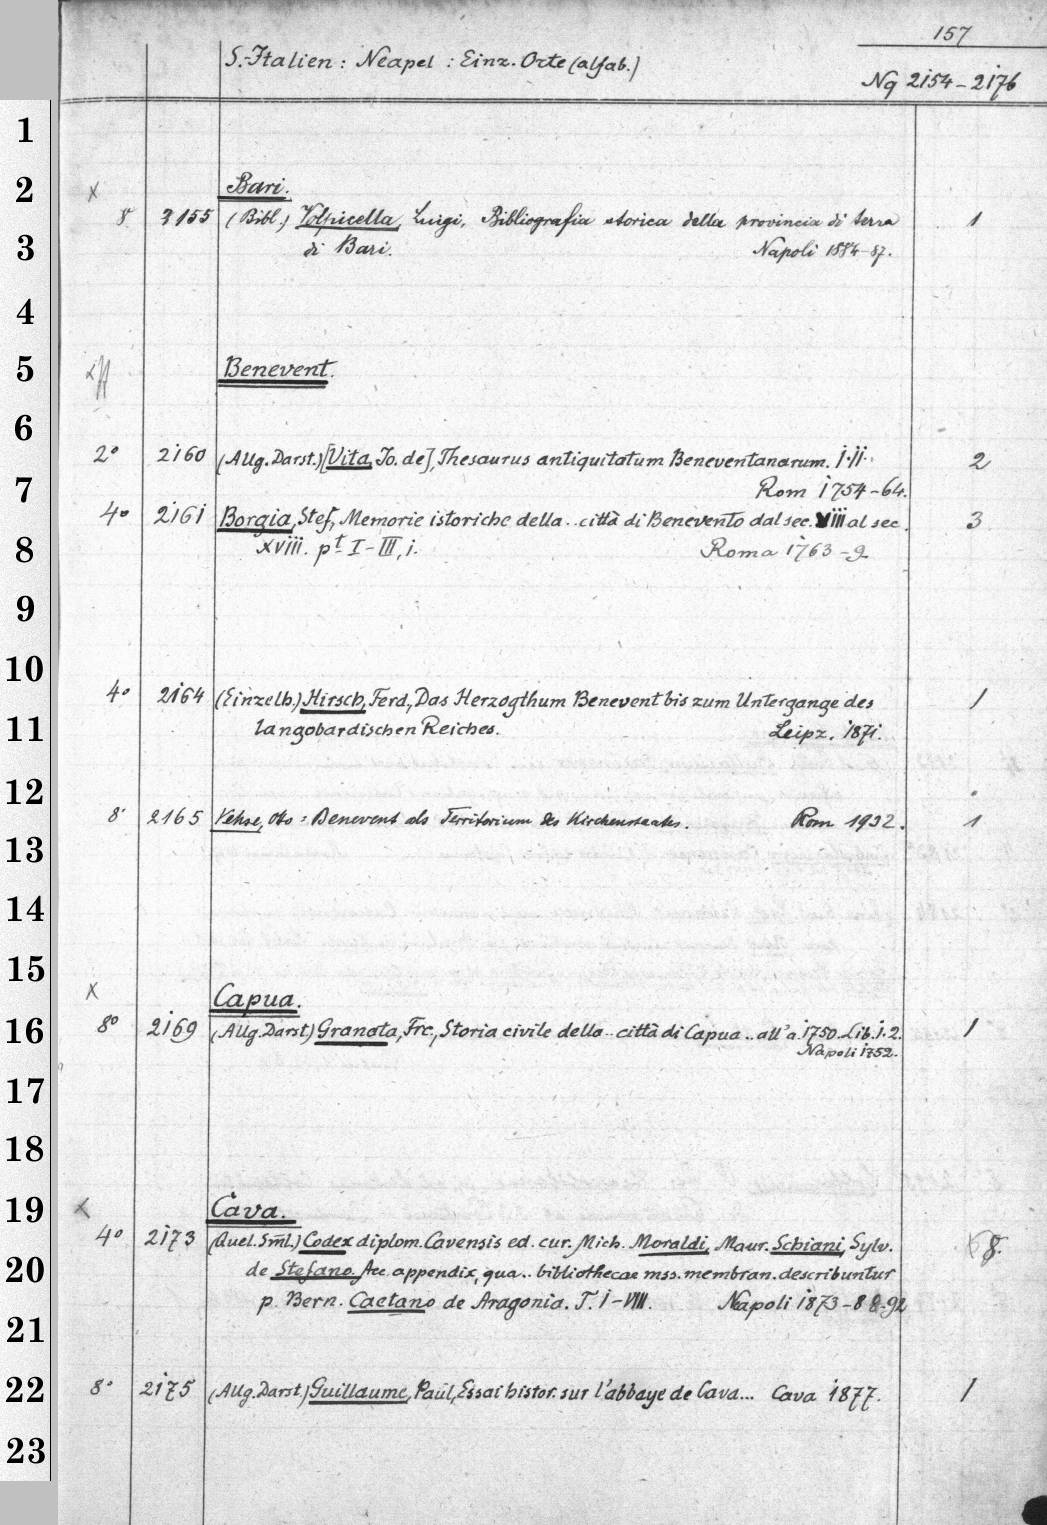 157
S.-Italien: Neapel: Einz. Orte (alfab.)
Nq 2154-2176
1
2 x Bari.
8° 2155 (Bibl.) Volpicella, Luigi. Bibliografia storica della provincia di terra 1
3 di Bari. Napoli 1884-87.
4
5 Benevent.
6
2° 2160 (Allg. Darst.) [Vita, Jo. de], Thesaurus antiquitatum Beneventanarum. i.ii. 2
7 Rom 1754-64.
4° 2161 Borgia, Stef., Memorie istoriche della.. città di Benevento dal sec. viii al sec. 3
8 xviii. pt I-III, i. Roma 1763-9
9
10
4° 2164 (Einzelh.) Hirsch, Ferd., Das Herzogthum Benevent bis zum Untergange des 1
11 langobardischen Reiches. Leipz. 1871.
12
8° 2165 Vehse, Otto: Benevent als Territorium des Kirchenstaates. Rom 1932. 1
13
14
15
x Capua.
16 8° 2169 (Allg. Darst) Granata, Frc., Storia civile della.. città di Capua.. all'a. 1750. Lib. 1.2. 1
Napoli 1752.
17
18
19 x Cava.
4° 2173 (Quel. Sml.) Codex diplom. Cavensis ed. cur. Mich. Moraldi, Maur. Schiani, Sylv. 8.
20 de Stefano. Acc. appendix, qua.. bibliothecae mss. membran. describuntur
p. Bern. Caetano de Aragonia. T. I-VIII. Napoli 1873-88-92
21
22 8° 2175 (Allg. Darst.) Guillaume, Paul, Essai histor. sur l'abbaye de Cava... Cava 1877. 1
23